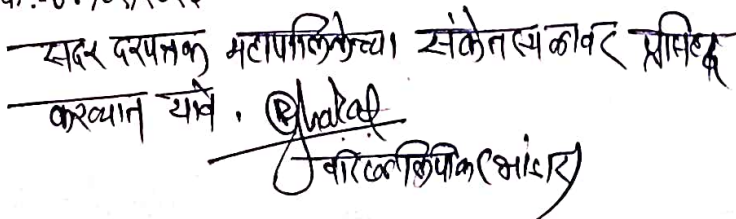 सदर दरपत्रक महापालिकेच्या संकेतस्थळावर प्रसिद्ध
करण्यात यावे .
वरिष्ठ लिपीक (भांडार)